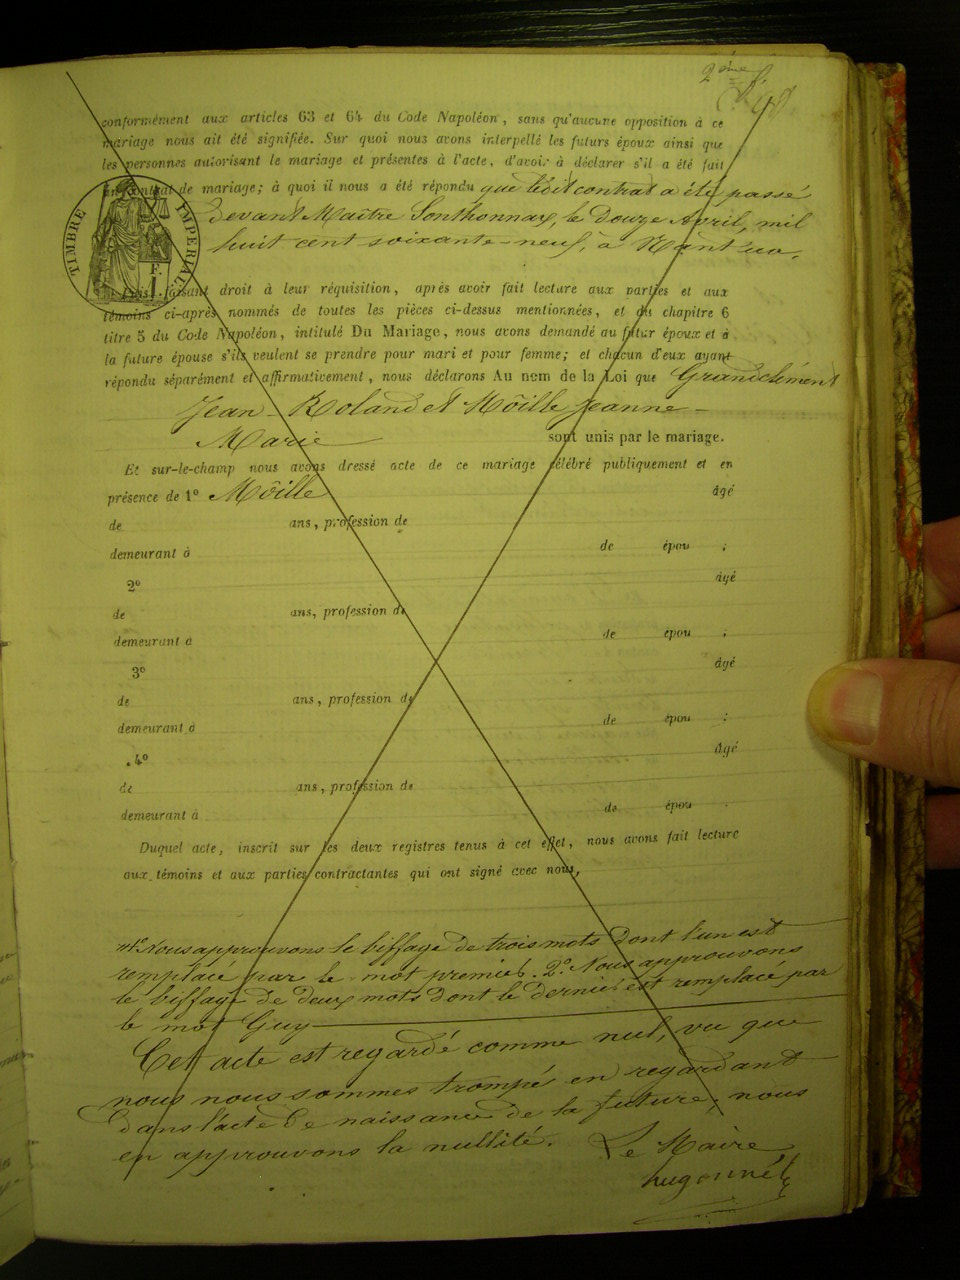 2ème
conformément aux articles 63 et 64 du Code Napoléon, sans qu'aucune opposition à ce
mariage nous ait été signifiée. Sur quoi nous avons interpellé les futurs époux ainsi que
les personnes autorisant le mariage et présentes à l'acte, d'avoir à déclarer s'il a été fait
un contrat de mariage; à quoi il nous a été répondu que ledit contrat a été passé
Devant Maître Sonthonnax, le Douze Avril, mil
huit cent soixante-neuf, à Nantua.
TIMBRE IMPERIAL
F. 1
Puis, faisant droit à leur réquisition, après avoir fait lecture aux parties et aux
témoins ci-après nommés de toutes les pièces ci-dessus mentionnées, et du chapitre 6
titre 5 du Code Napoléon, intitulé Du Mariage, nous avons demandé au futur époux et à
la future épouse s'ils veulent se prendre pour mari et pour femme; et chacun d'eux ayant
répondu séparément et affirmativement, nous déclarons Au nom de la Loi que Grandclément
Jean-Roland et Môille Jeanne-
Marie sont unis par le mariage.
Et sur-le-champ nous avons dressé acte de ce mariage célébré publiquement et en
présence de 1º Môille âgé
de ans, profession de
demeurant à de épou ;
2º âgé
de ans, profession de
demeurant à de épou ;
3º âgé
de ans, profession de
demeurant à de épou ;
4º âgé
de ans, profession de
demeurant à de épou .
Duquel acte, inscrit sur les deux registres tenus à cet effet, nous avons fait lecture
aux témoins et aux parties contractantes qui ont signé avec nous,
1º Nous approuvons le biffage de trois mots dont l'un est
remplacé par le mot premier. 2º Nous approuvons
le biffage de deux mots dont le dernier est remplacé par
le mot Guy
Cet acte est regardé comme nul, vu que
nous nous sommes trompé en regardant
dans l'acte de naissance de la future, nous
en approuvons la nullité. Le Maire
hugonnet